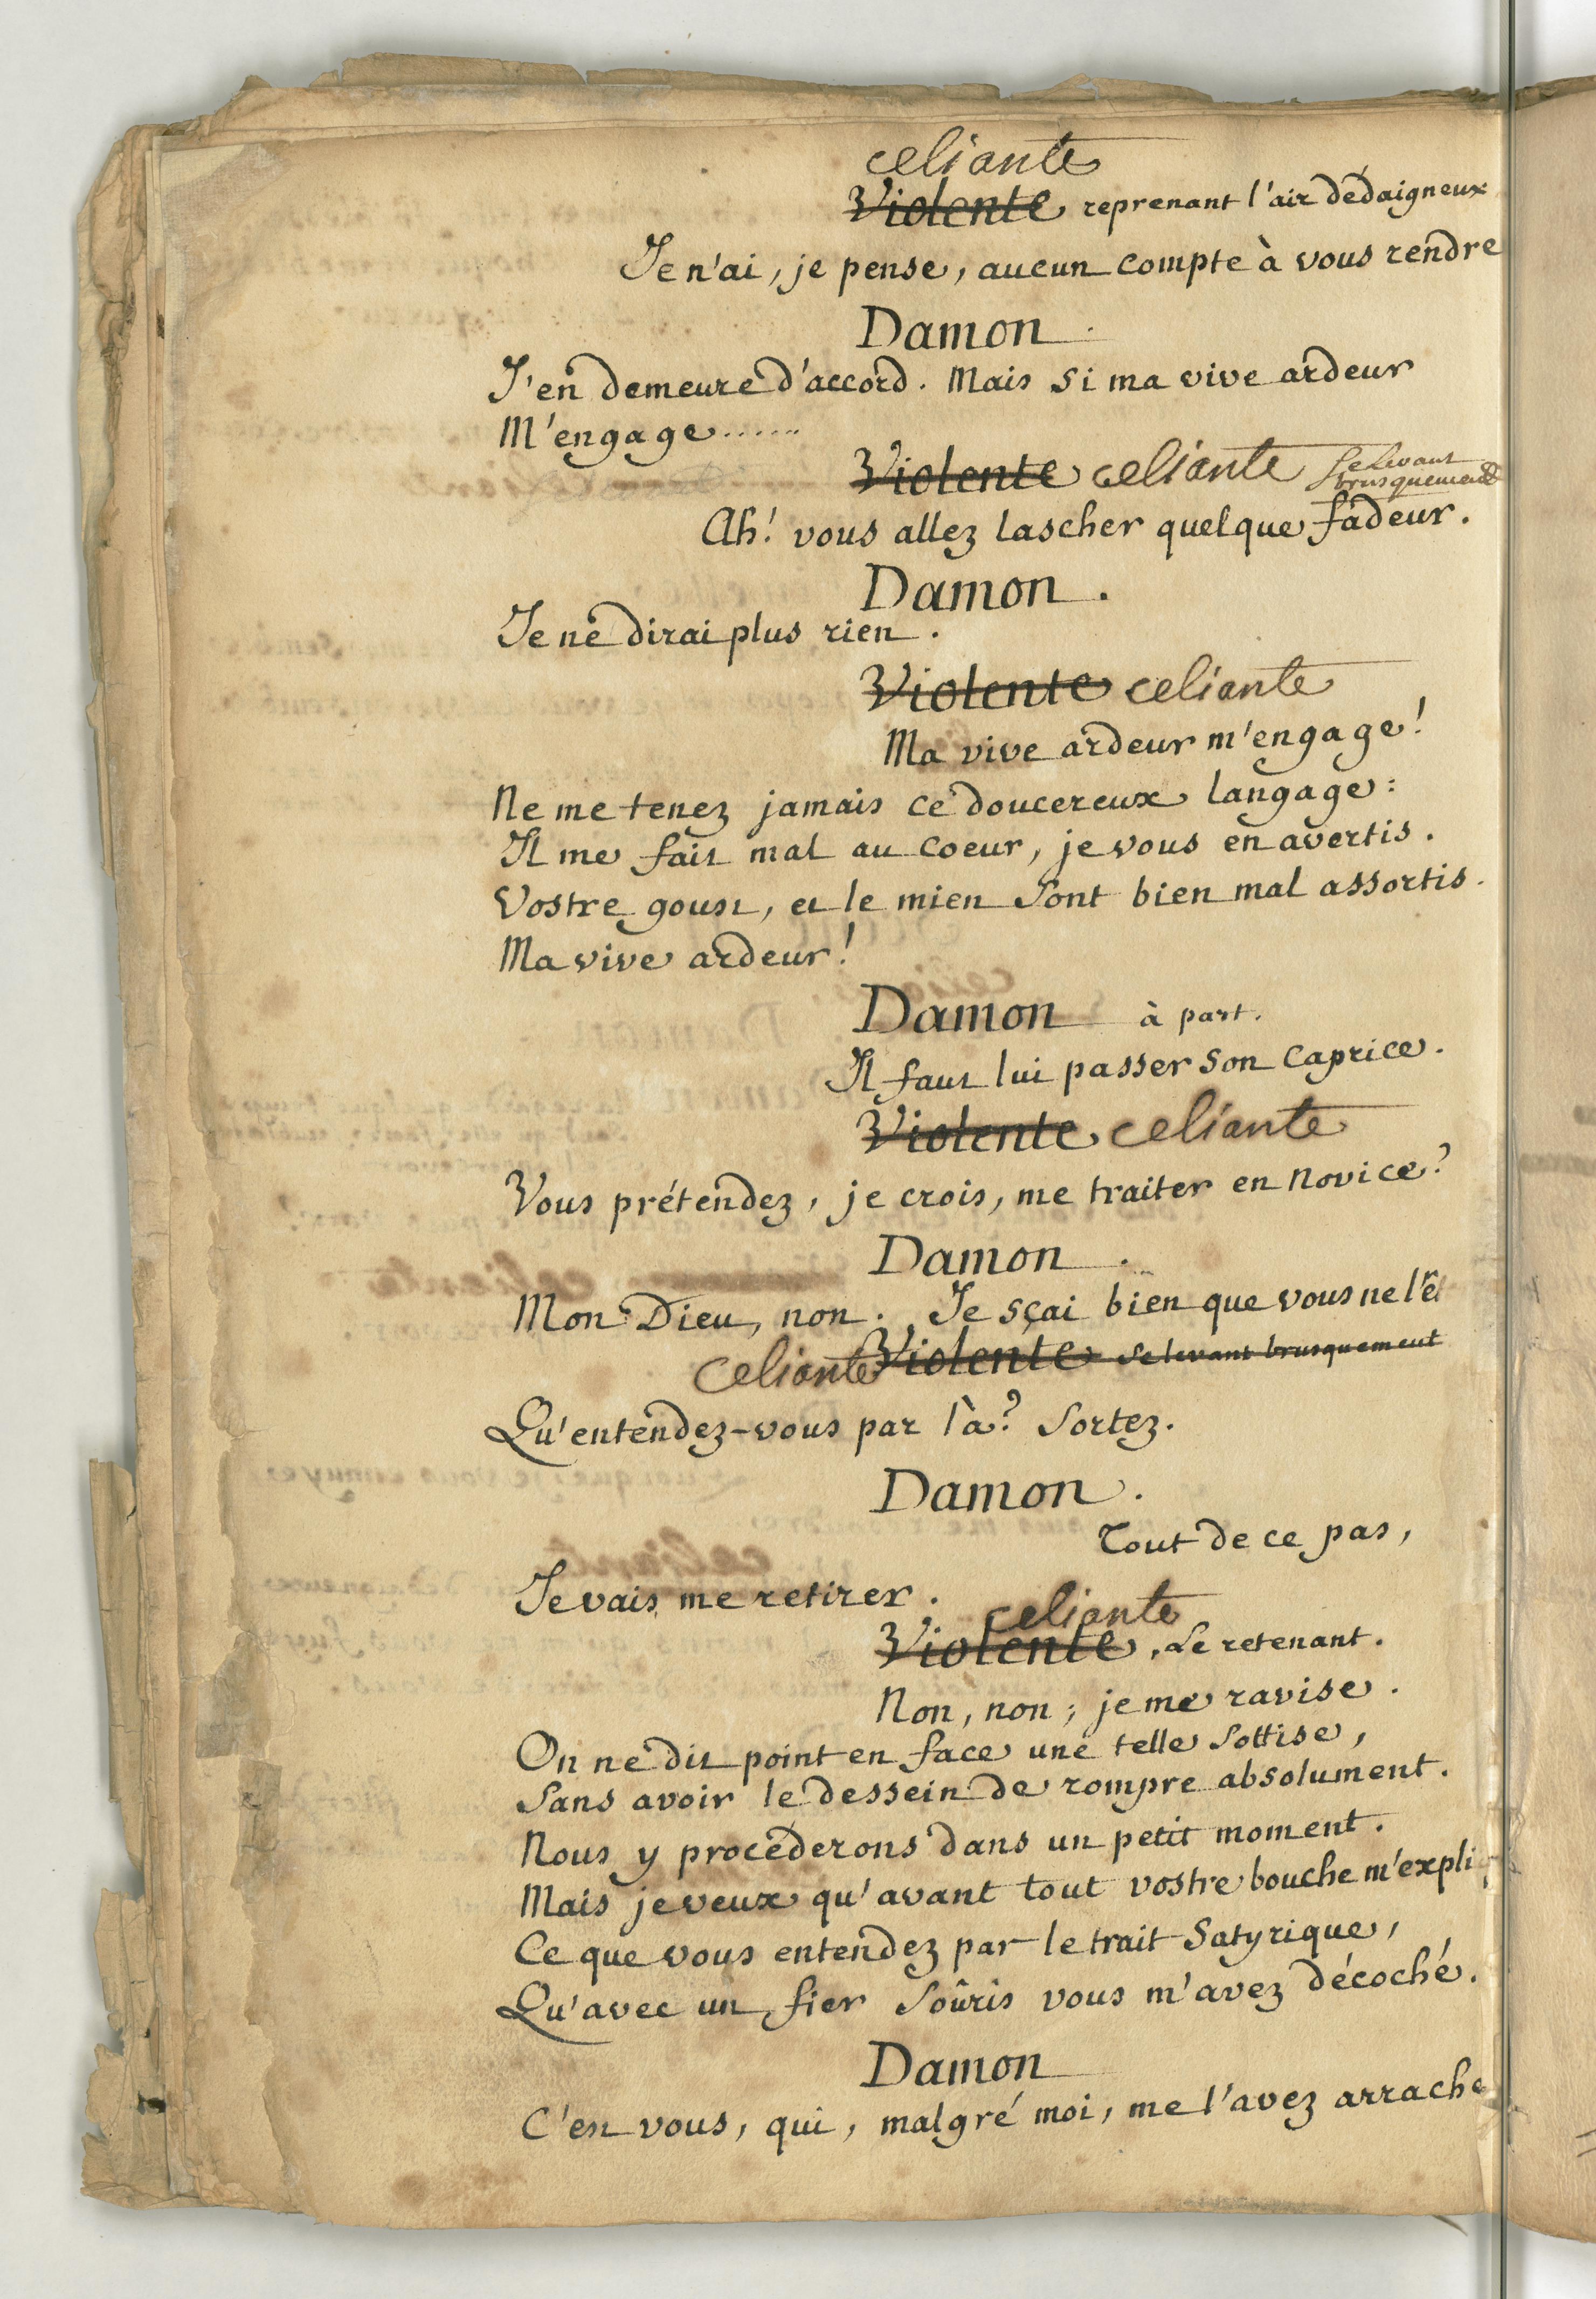 celiante
Violente reprenant l'air dédaigneux
Je n'ai, je pense, aucun compte à vous rendre
Damon
J'en demeure d'accord. Mais si ma vive ardeur
M'engage......
Violente celiante se levant
brusquement
Ah! vous allez lascher quelque fadeur.
Damon.
Je ne dirai plus rien.
Violente celiante
Ma vive ardeur m'engage!
Ne me tenez jamais ce doucereux langage:
Il me fait mal au coeur, je vous en avertis.
Vostre goust, et le mien sont bien mal assortis.
Ma vive ardeur!
Damon à part.
Il faut lui passer son caprice.
Violente celiante
Vous prétendez, je crois, me traiter en novice?
Damon.
Mon Dieu, non. Je sçai bien que vous ne l'ê
celiante Violente se levant brusquement
Qu'entendez-vous par là? Sortez.
Damon.
Tout de ce pas,
Je vais me retirer.
celiante
Violente, le retenant.
Non, non; je me ravise.
On ne dit point en face une telle sottise,
Sans avoir le dessein de rompre absolument.
Nous y procéderons dans un petit moment.
Mais je veux qu'avant tout vostre bouche m'expliq
Ce que vous entendez par le trait Satyrique,
Qu'avec un fier soûris vous m'avez décoché.
Damon
C'est vous, qui, malgré moi, me l'avez arraché